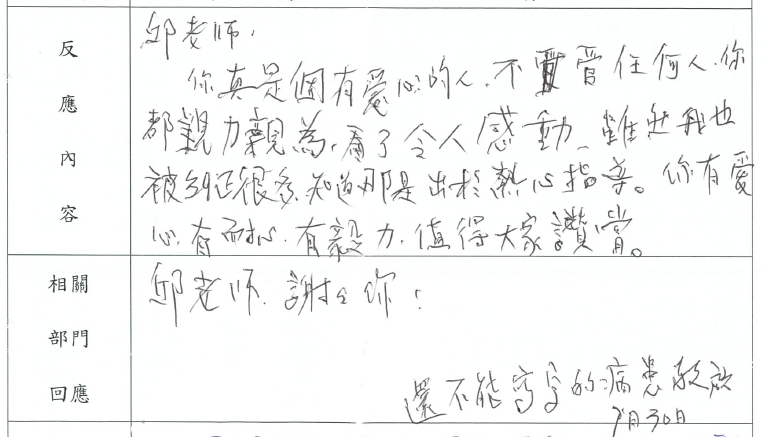 反應內容
邱老師，
你真是個有愛心的人，不管任何人，你
都親力親為，看了令人感動，雖然我也
被糾正很多，知道那是出於熱心指導。你有愛
心，有耐心，有毅力，值得大家讚賞。
相關
部門
回應
邱老師，謝謝你！
還不能寫字的病患敬啟
月30日